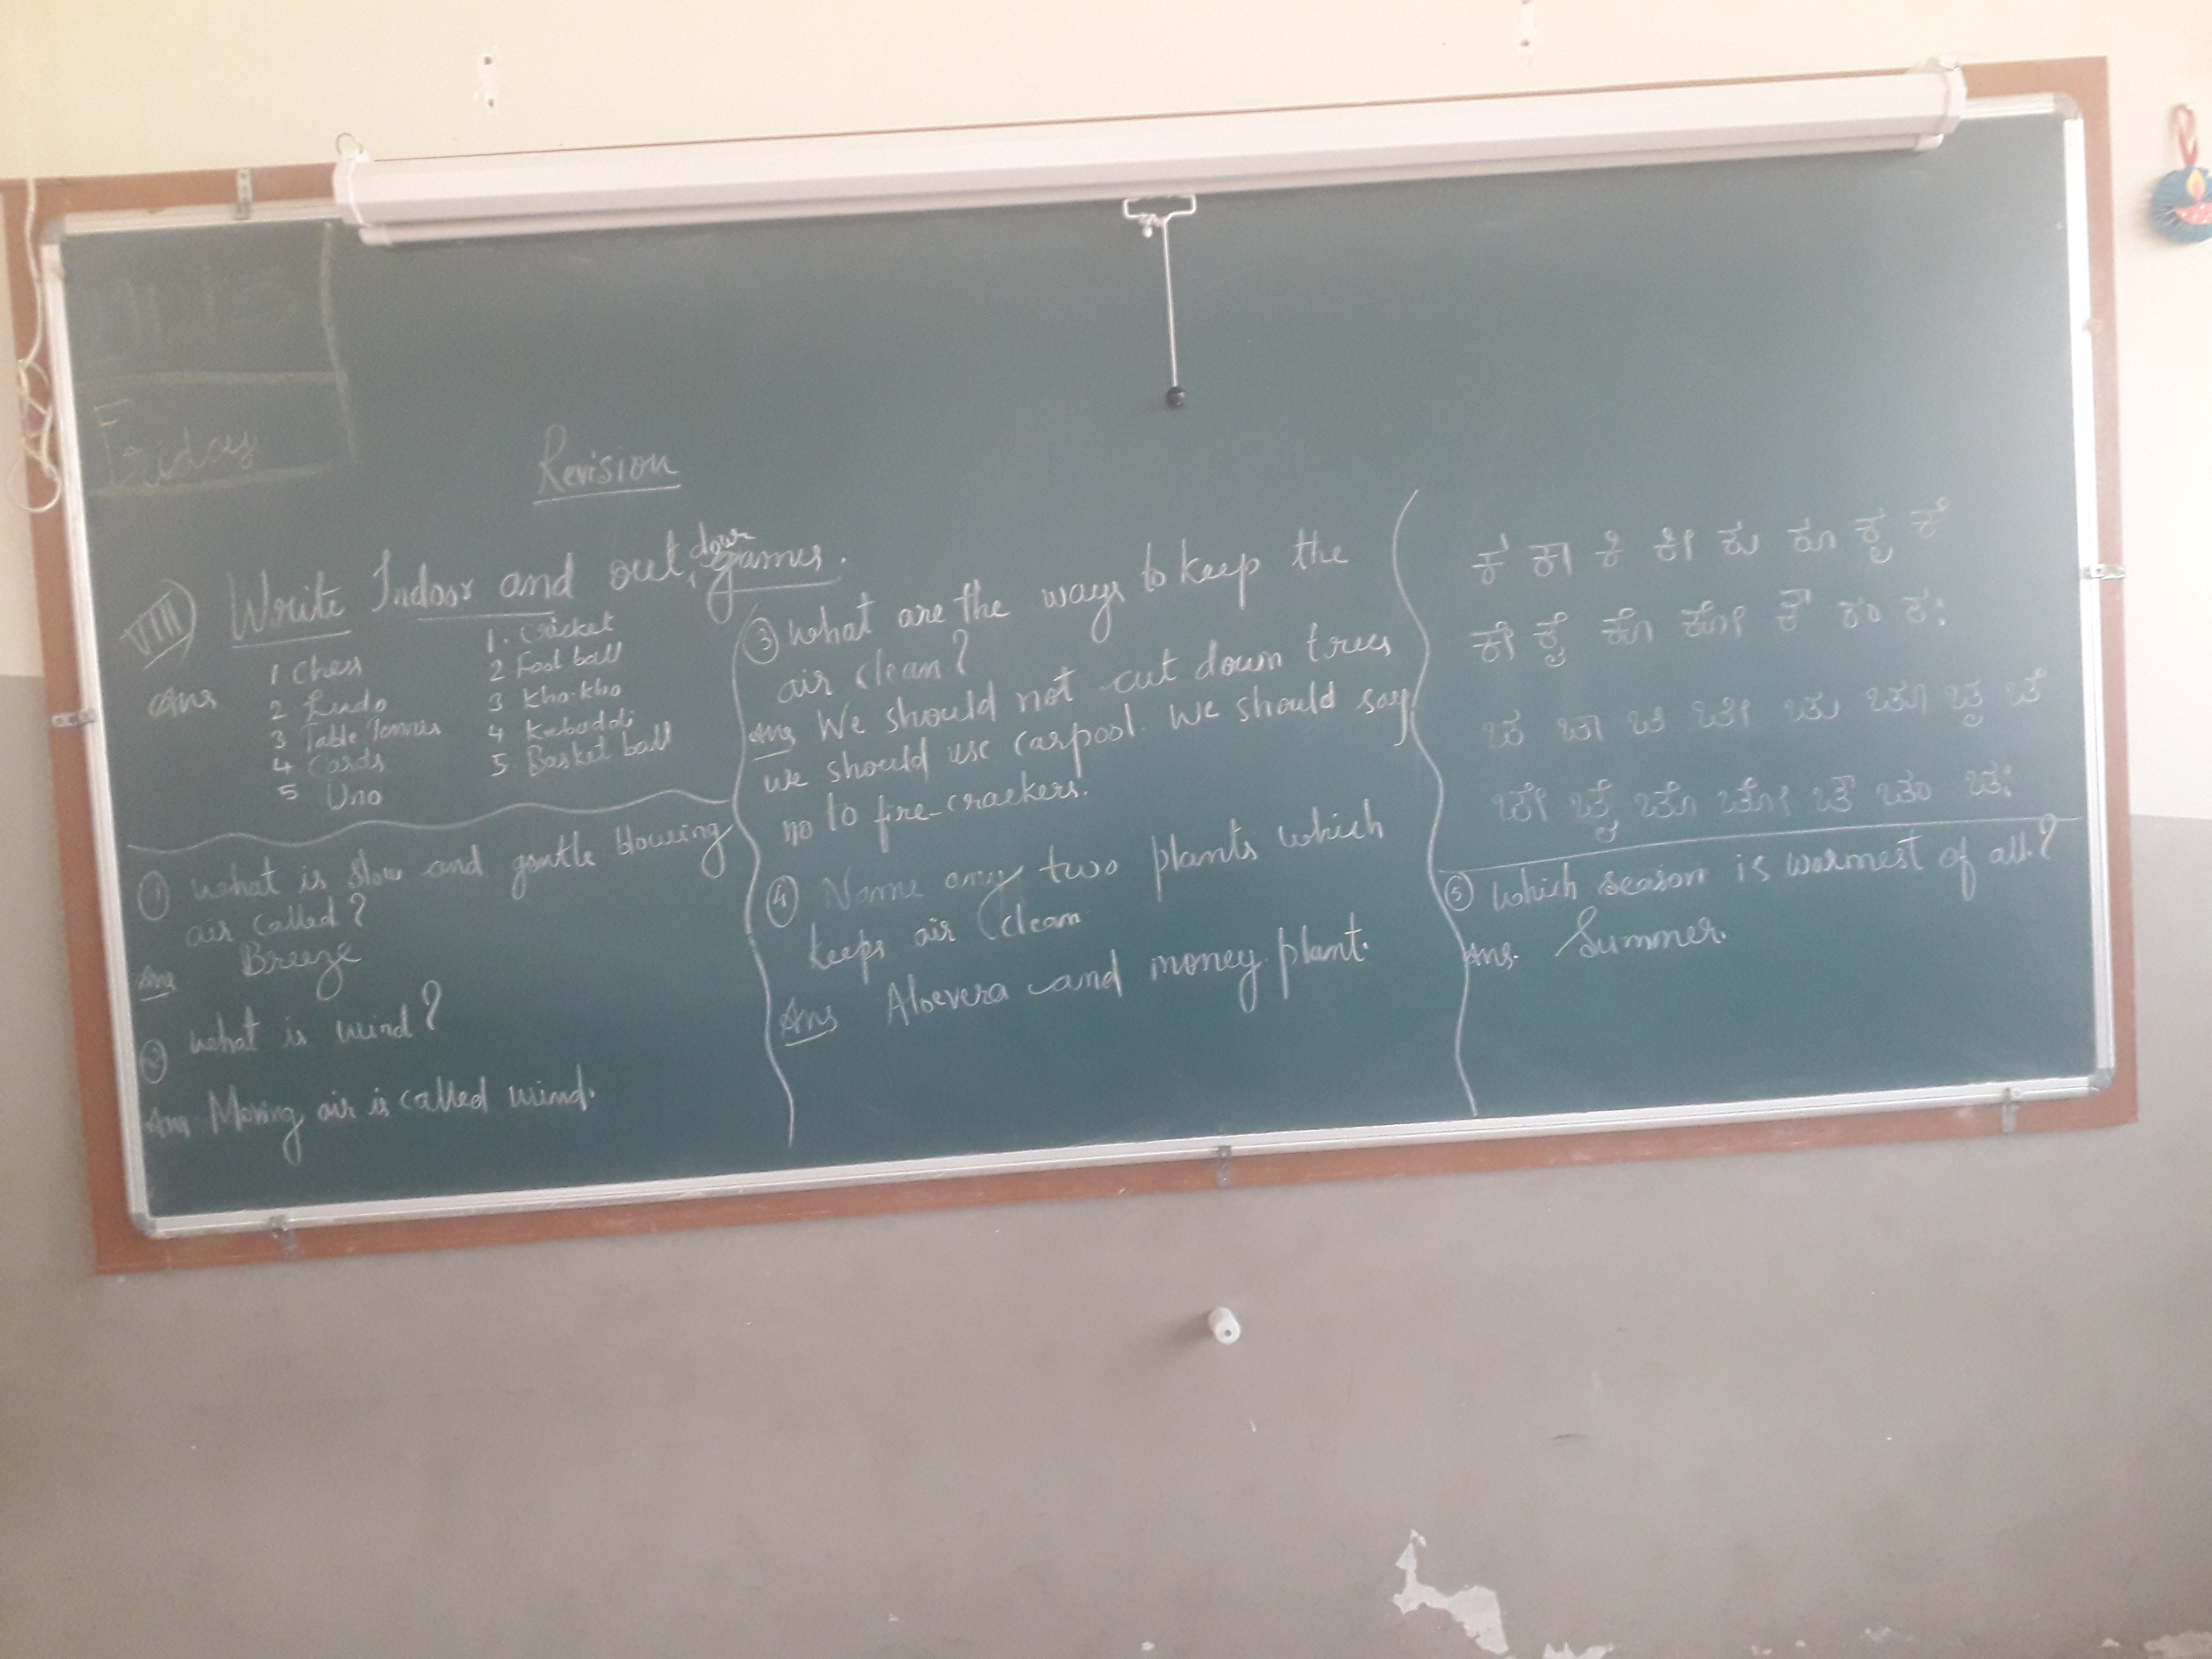 Friday
Revision
VIII) Write Indoor and out door games.
Ans
1 Chess
2 Ludo
3 Table Tennis
4 Cards
5 Uno
1. Cricket
2 Foot ball
3 Kho-kho
4 Kabaddi
5. Basket ball
① what is slow and gentle blowing
air called?
Ans Breeze
② what is wind?
Ans Moving air is called wind.
③ what are the ways to keep the
air clean?
Ans We should not cut down trees
we should use carpool. We should say
no to fire-crackers.
④ Name any two plants which
keeps air clean
Ans Aloevera and money plant.
ಕ ಕಾ ಕಿ ಕೀ ಕು ಕೂ ಕೃ ಕೆ
ಕೇ ಕೈ ಕೊ ಕೋ ಕೌ ಕಂ ಕಃ
ಚ ಚಾ ಚಿ ಚೀ ಚು ಚೂ ಚೃ ಚೆ
ಚೇ ಚೈ ಚೊ ಚೋ ಚೌ ಚಂ ಚಃ
⑤ which season is warmest of all?
Ans. Summer.